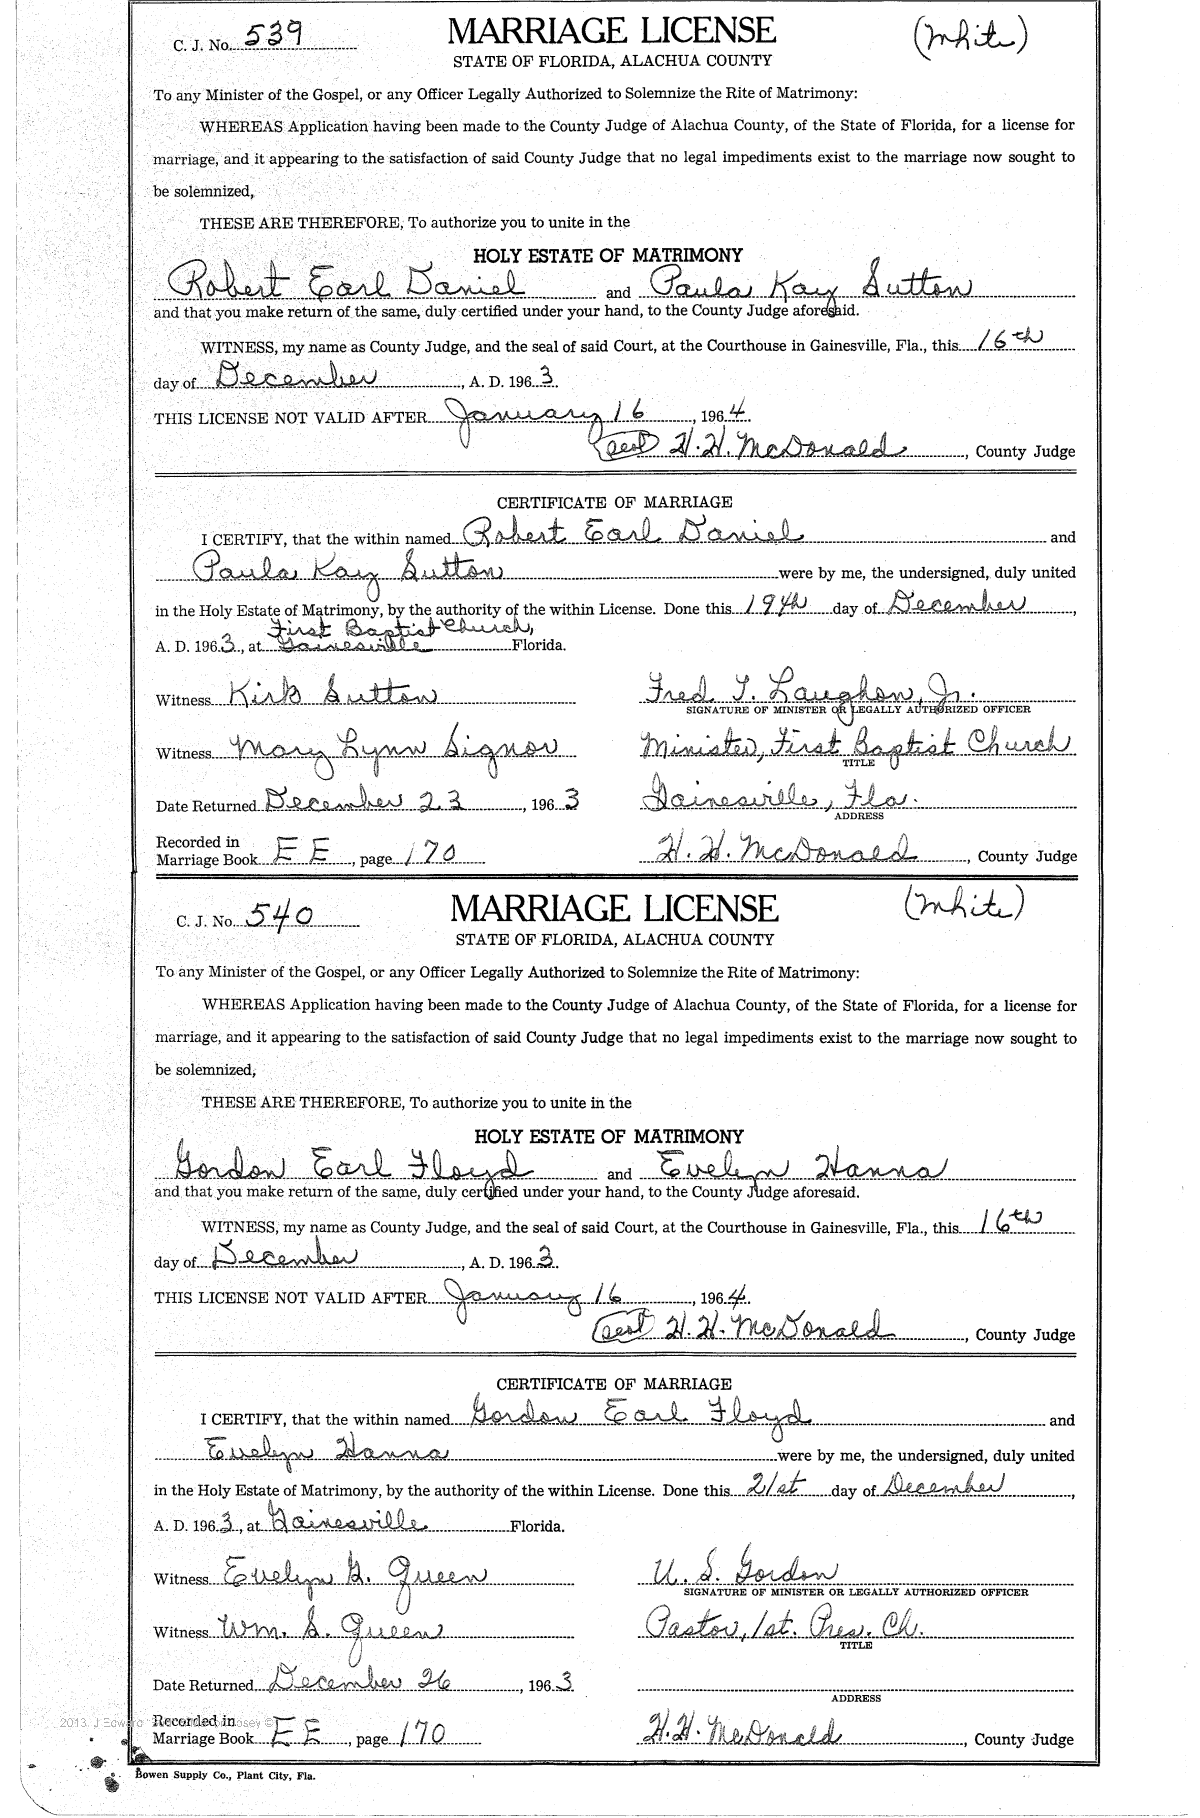 C. J. No. 539 MARRIAGE LICENSE (White)
STATE OF FLORIDA, ALACHUA COUNTY
To any Minister of the Gospel, or any Officer Legally Authorized to Solemnize the Rite of Matrimony:
WHEREAS Application having been made to the County Judge of Alachua County, of the State of Florida, for a license for
marriage, and it appearing to the satisfaction of said County Judge that no legal impediments exist to the marriage now sought to
be solemnized,
THESE ARE THEREFORE, To authorize you to unite in the
HOLY ESTATE OF MATRIMONY
Robert Earl Daniel and Paula Kay Sutton
and that you make return of the same, duly certified under your hand, to the County Judge aforesaid.
WITNESS, my name as County Judge, and the seal of said Court, at the Courthouse in Gainesville, Fla., this 16th
day of December, A. D. 1963.
THIS LICENSE NOT VALID AFTER January 16, 1964.
(seal) H. H. McDonald, County Judge
CERTIFICATE OF MARRIAGE
I CERTIFY, that the within named Robert Earl Daniel and
Paula Kay Sutton were by me, the undersigned, duly united
in the Holy Estate of Matrimony, by the authority of the within License. Done this 19th day of December,
First Baptist Church,
A. D. 1963, at Gainesville Florida.
Witness Kirk Sutton Fred T. Laughon, Jr.
SIGNATURE OF MINISTER OR LEGALLY AUTHORIZED OFFICER
Witness Mary Lynn Signor Minister, First Baptist Church
TITLE
Date Returned December 23, 1963 Gainesville, Fla.
ADDRESS
Recorded in
Marriage Book EE, page 170 H. H. McDonald, County Judge
C. J. No. 540 MARRIAGE LICENSE (White)
STATE OF FLORIDA, ALACHUA COUNTY
To any Minister of the Gospel, or any Officer Legally Authorized to Solemnize the Rite of Matrimony:
WHEREAS Application having been made to the County Judge of Alachua County, of the State of Florida, for a license for
marriage, and it appearing to the satisfaction of said County Judge that no legal impediments exist to the marriage now sought to
be solemnized,
THESE ARE THEREFORE, To authorize you to unite in the
HOLY ESTATE OF MATRIMONY
Gordon Earl Floyd and Evelyn Hanna
and that you make return of the same, duly certified under your hand, to the County Judge aforesaid.
WITNESS, my name as County Judge, and the seal of said Court, at the Courthouse in Gainesville, Fla., this 16th
day of December, A. D. 1963.
THIS LICENSE NOT VALID AFTER January 16, 1964.
(seal) H. H. McDonald, County Judge
CERTIFICATE OF MARRIAGE
I CERTIFY, that the within named Gordon Earl Floyd and
Evelyn Hanna were by me, the undersigned, duly united
in the Holy Estate of Matrimony, by the authority of the within License. Done this 21st day of December,
A. D. 1963, at Gainesville Florida.
Witness Evelyn G. Queen U. S. Gordon
SIGNATURE OF MINISTER OR LEGALLY AUTHORIZED OFFICER
Witness Wm. S. Queen Pastor, 1st. Pres. Ch.
TITLE
Date Returned December 26, 1963
ADDRESS
2013. J Edward
Recorded in
Marriage Book EE, page 170 H. H. McDonald, County Judge
Bowen Supply Co., Plant City, Fla.